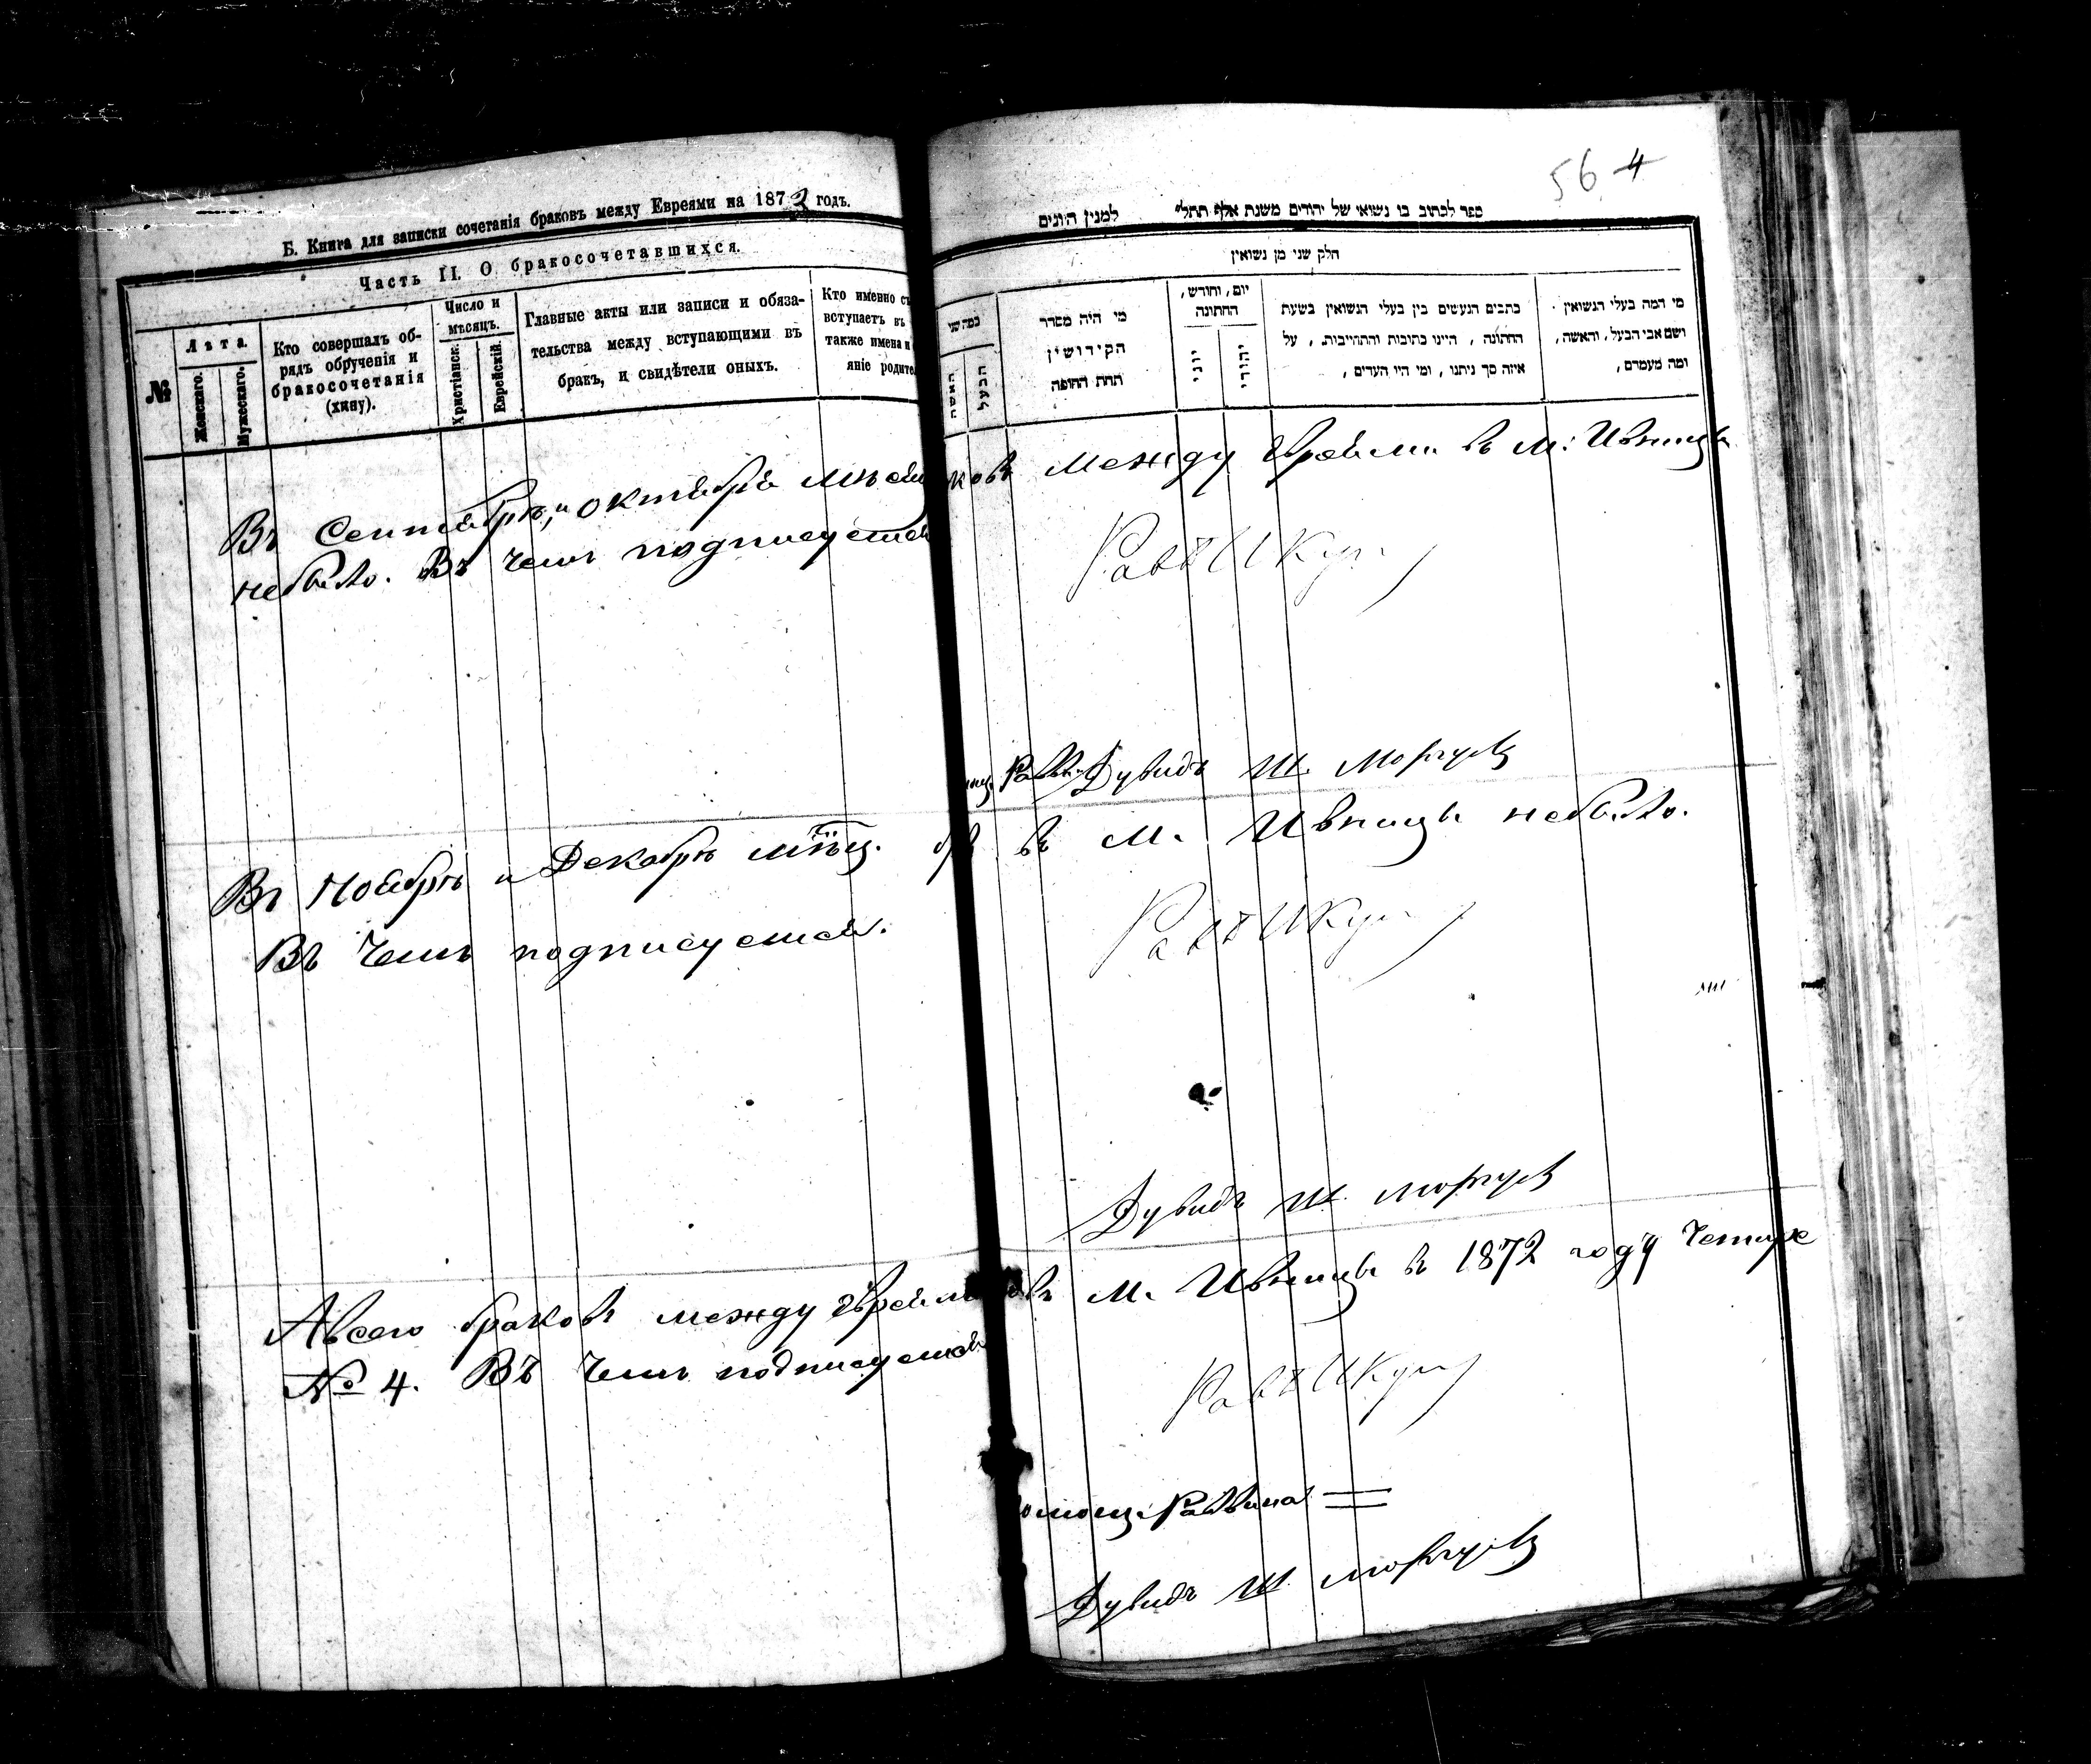 Б. Книга для записки сочетанія браковъ между Евреями на 1872 годъ.
Часть II. О бракосочетавшихся.
№
Лѣта.
Женскаго.
Мужескаго.
Кто совершалъ об-
рядъ обрученія и
бракосочетанія
(хипу).
Число и
мѣсяцъ.
Христіанск.
Еврейскій.
Главные акты или записи и обяза-
тельства между вступающими въ
бракъ, и свидѣтели оныхъ.
Кто именно
вступаетъ въ
также имена и
яніе родите
56 4
ספר לכתוב בו נשואי של יהודים משנת אלף תתל״ למנין היונים
חלק שני מן נשואין
כמה שני
האשה
הבעל
מי היה מסדר
הקידושין
תחת החופה
יום, וחודש,
החתונה
יוני
יהודי
כתבים הנעשים בין בעלי הנשואין בשעת
החתונה, היינו כתובות והתחייבות, על
איזה סך ניתנו, ומי היו העדים,
מי המה בעלי הנשואין
ושם אבי הבעל, והאשה,
ומה מעמדם,
Въ Сентябрѣ, и октябрѣ ковъ между Евреями въ М: Ивницѣ
небыло. Въ чемъ подписуемся
Дувидъ Ш.
Въ Ноябрѣ и Декабрѣ въ М. Ивницѣ небыло.
Въ чемъ подписуемся.
Дувидъ Ш.
Авсего браковъ между Евреями въ М. Ивницѣ въ 1872 году четыре
№ 4. Въ чемъ подписуемся
Раввина
Дувидъ Ш.